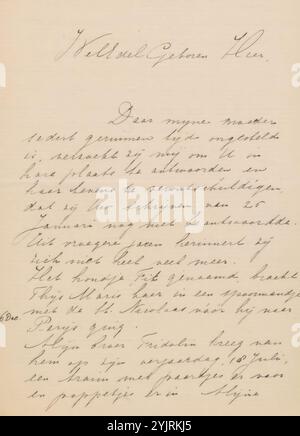 WelEdelGeboren Heer,
Daar mijne moeder
sedert geruimen tijd ongesteld
is, verzocht zij mij om U in
hare plaats te antwoorden en
haar tevens te verontschuldigen,
dat zij Uw schrijven van 25
Januari nog niet beantwoordde.
Uit vroegere jaren herinnert zij
zich niet heel veel meer.
Het hondje Fik genaamd bracht
Thijs Maris haer in een spoormandje
met de St. Nicolaas voor hij naar
6 Dec.
Parijs ging.
Mijn broer Fridolin kreeg van
hem op zijn verjaardag, 18 Juli,
een tram met paardjes er voor
en poppetjes er in. Mijne
alamy
Image ID: 2YJRKJ5
www.alamy.com